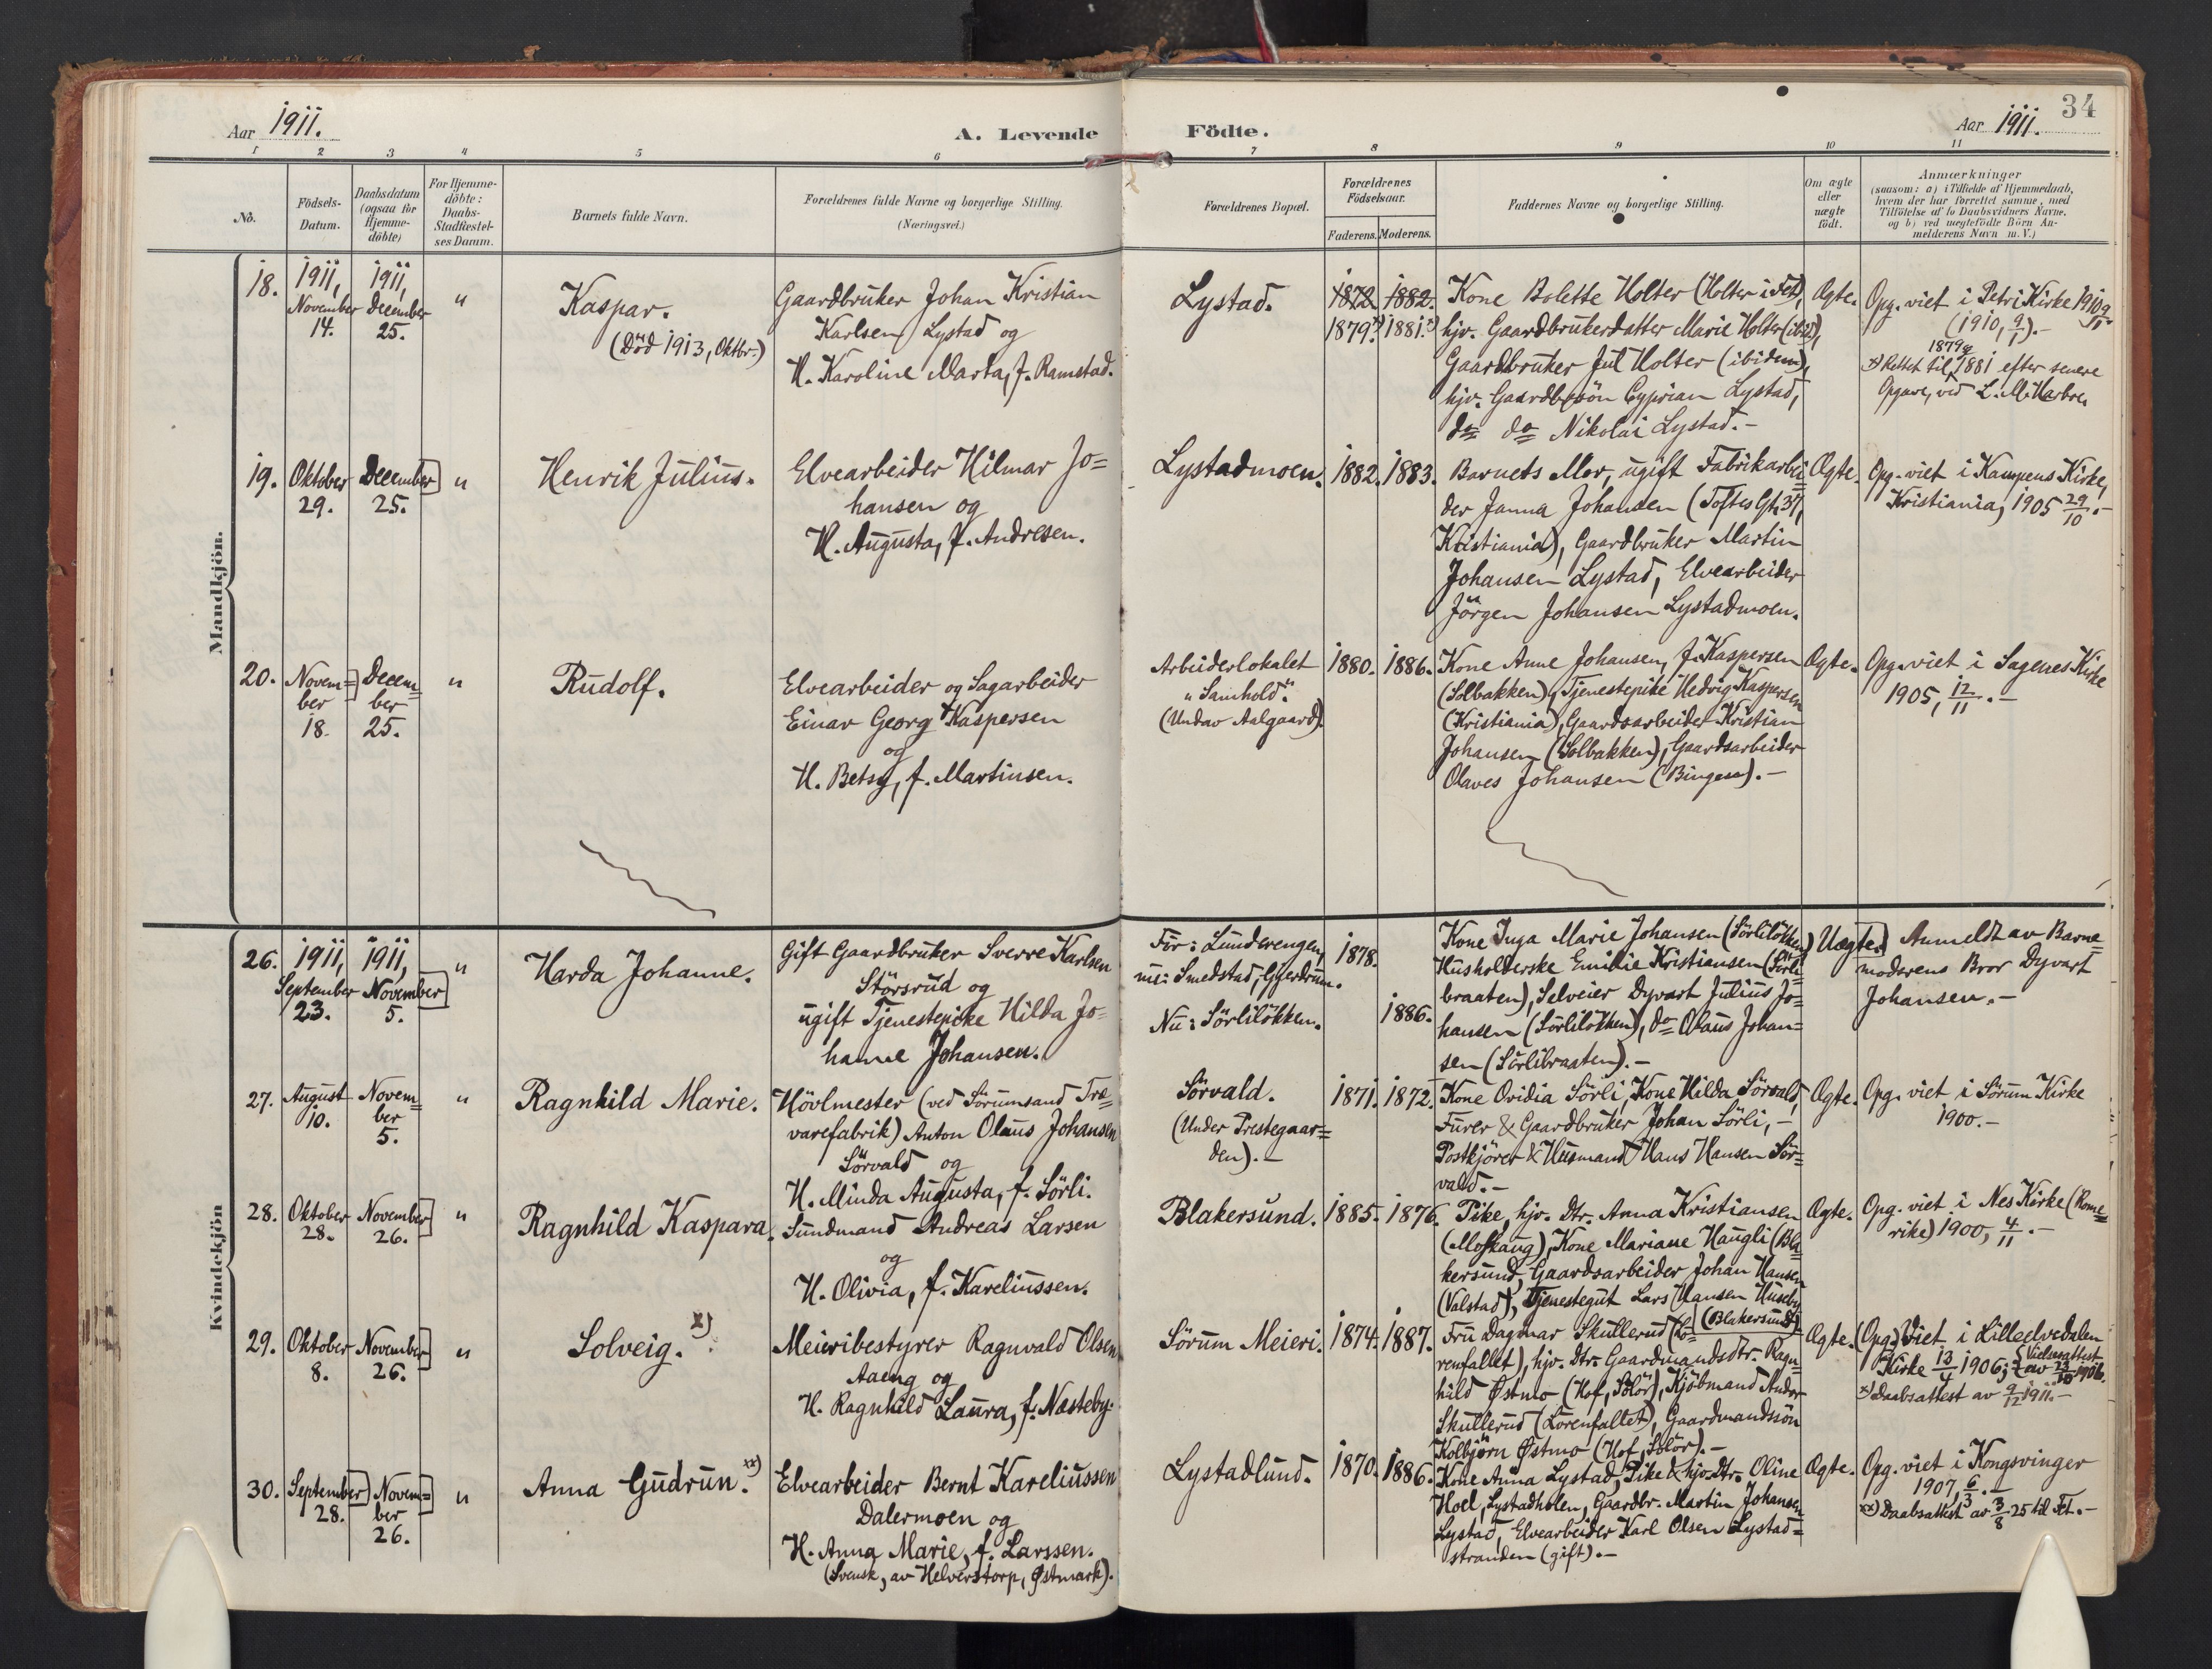 Aar 1911.
A. Levende Födte.
Aar 1911.
34
1 2 3 4 5 6 7 8 9 10 11
No.
Födsels-Datum.
Daabsdatum (ogsaa for Hjemme-döbte)
For Hjemme-döbte: Daabs-Stadfæstel-ses Datum.
Barnets fulde Navn.
Forældrenes fulde Navne og borgerlige Stilling.
(Næringsvei.)
Forældrenes Bopæl.
Forældrenes Födselsaar.
Faderens. Moderens.
Faddernes Navne og borgerlige Stilling.
Om ægte eller uægte födt.
Anmærkninger
(saasom: a) i Tilfælde af Hjemmedaab,
hvem der har forrettet samme, med
Tilföielse af to Daabsvidners Navne.
og b) ved uægtefödte Börn An-
melderens Navn m. V.)
Mandkjön.
18.
1911, November 14.
1911, December 25.
"
Kaspar.
(Död 1913, Oktbr.)
Gaardbruker Johan Kristian
Karlsen Lystad og
H. Karoline Marta, f. Ramstad.
Lystad.
1872. 1882.
1879.x) 1881.x)
Kone Bolette Holter (Holter i Fet),
hjv. Gaardbrukerdatter Marie Holter (ibid),
Gaardbruker Jul Holter (ibidem),
hjv. Gaardbr.sön Cyprian Lystad,
do do Nikolai Lystad.-
Ægte.
Opg. viet i Petri Kirke 1910 9/11
(1910, 9/1).-
1879 &
x) Rettet til 1881 efter senere
Opgave, ved L. M.
19.
Oktober 29.
December 25.
"
Henrik Julius.
Elvearbeider Hilmar Jo=
hansen og
H. Augusta, f. Andresen.
Lystadmoen.
1882. 1883.
Barnets Mor, ugift Fabrikarbei=
der Janna Johansen (Toftes Gt. 37,
Kristiania), Gaardbruker Martin
Johansen Lystad, Elvearbeider
Jörgen Johansen Lystadmoen.
Ægte.
Opg. viet i Kampens Kirke,
Kristiania, 1905 29/10.-
20.
Novem=ber 18.
Decem=ber 25.
"
Rudolf.
Elvearbeider og Sagarbeider
Einar Georg Kaspersen
og
H. Betsy, f. Martinsen.
Arbeiderlokalet
"Samhold".
(Under Aalgaard).
1880. 1886.
Kone Anne Johansen, f. Kaspersen
(Solbakken), Tjenestepike Hedvig Kaspersen
(Kristiania), Gaardsarbeider Kristian
Johansen (Solbakken), Gaardsarbeider
Olaves Johansen (Bingen).-
Ægte.
Opg. viet i Sagenes Kirke
1905, 12/11.-
Kvindekjön
26.
1911, September 23.
1911, November 5.
"
Harda Johanne.
Gift Gaardbruker Sverre Karlsen
Störsrud og
ugift Tjenestepike Hilda Jo=
hanne Johansen.
Für: Lunderengen,
nu: Smedstad, Gjerdrum.
Nu: Sörlilökken.
1878.
1886.
Kone Inga Marie Johansen (Sörlilökken)
Husholderske Emilie Kristiansen (Sörli
braaten), Selveier Dyvart Julius Jo=
hansen (Sörlilökken), do Olaus Johan=
sen (Sörlibraaten).-
Uægte.
Anmeldt av Barne=
moderens Bror Dyvart
Johansen.-
27.
August 10.
Novem=ber 5.
"
Ragnhild Marie.
Hövlmester (ved Sörumsand Træ=
varefabrik) Anton Olaus Johansen
Sörvald og
H. Minda Augusta, f. Sörli.
Sörvald.
(Under Prestegaar=
den).-
1871. 1872.
Kone Ovidia Sörli, Kone Hilda Sörvald,
Furer & Gaardbruker Johan Sörli,-
Postkjörer & Husmand Hans Hansen Sör=
vald.-
Ægte.
Opg. viet i Sörum Kirke
1900.-
28.
Oktober 28.
November 26.
"
Ragnhild Kaspara.
Sundmand Andreas Larsen
og
H. Olivia, f. Kareliussen.
Blakersund.
1885. 1876.
Pike, hjv. Dtr. Anna Kristiansen
(Moshaug), Kone Mariane Haugli (Bla=
kersund, Gaardsarbeider Johan Hansen
(Valstad), Tjenestegut Lars Hansen Huseby
(Blakersund)
Ægte.
Opg. viet i Nes Kirke (Rome=
rike) 1900, 4/11.-
29.
Oktober 8.
November 26.
"
Solveig. x)
Meieribestyrer Ragnvald Olsen
Aaeng og
H. Ragnhild Laura, f. Næsteby.
Sörum Meieri.
1874. 1887.
Fru Dagmar Skullerud (Lö=
renfallet), hjv. Dtr. Gaardmandsdtr. Ragn=
hild Østmo (Hof, Solör), Kjöbmand Ander
Skullerud (Lörenfallet), Gaardmandssön
Kolbjörn Østmo (Hof, Solör).-
Ægte.
(Opg.) Viet i Lilleelvedalen
Kirke 13/4 1906; (Vielsesattest av 23/10 1906.
x) Daabsattest av 9/12 1911.-
30.
September 28.
Novem=ber 26.
"
Anna Gudrun. xx)
Elvearbeider Bernt Kareliussen
Dalermoen og
H. Anna Marie, f. Larssen.
(Svensk, av Helverstorp, Østmark).
Lystadlund.
1870. 1886.
Kone Anna Lystad, Pike & hjv. Dtr. Oline
Hoel, Lystadholen, Gaardbr. Martin Johansen
Lystad, Elvearbeider Karl Olsen Lystad=
stranden (gift).-
Ægte.
Opg. viet i Kongsvinger
1907, 6/3.-
xx) Daabsattest av 3/8 25 til Fet.-